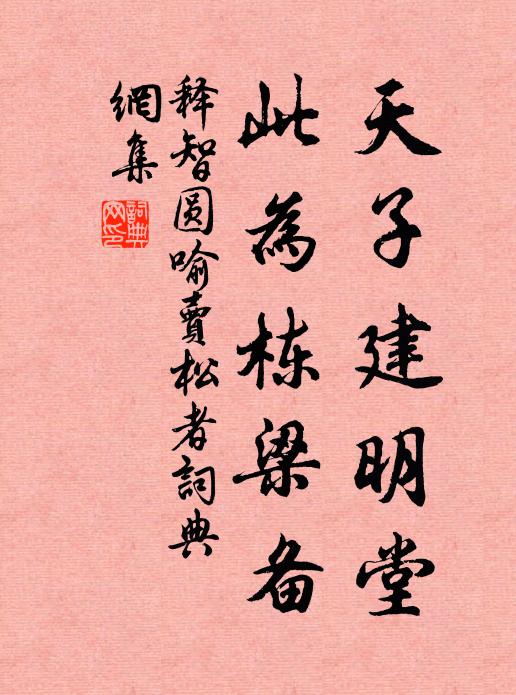 天子建明堂
此為栋梁备
释智圆喻賣松者詞典
網集
詞典網印